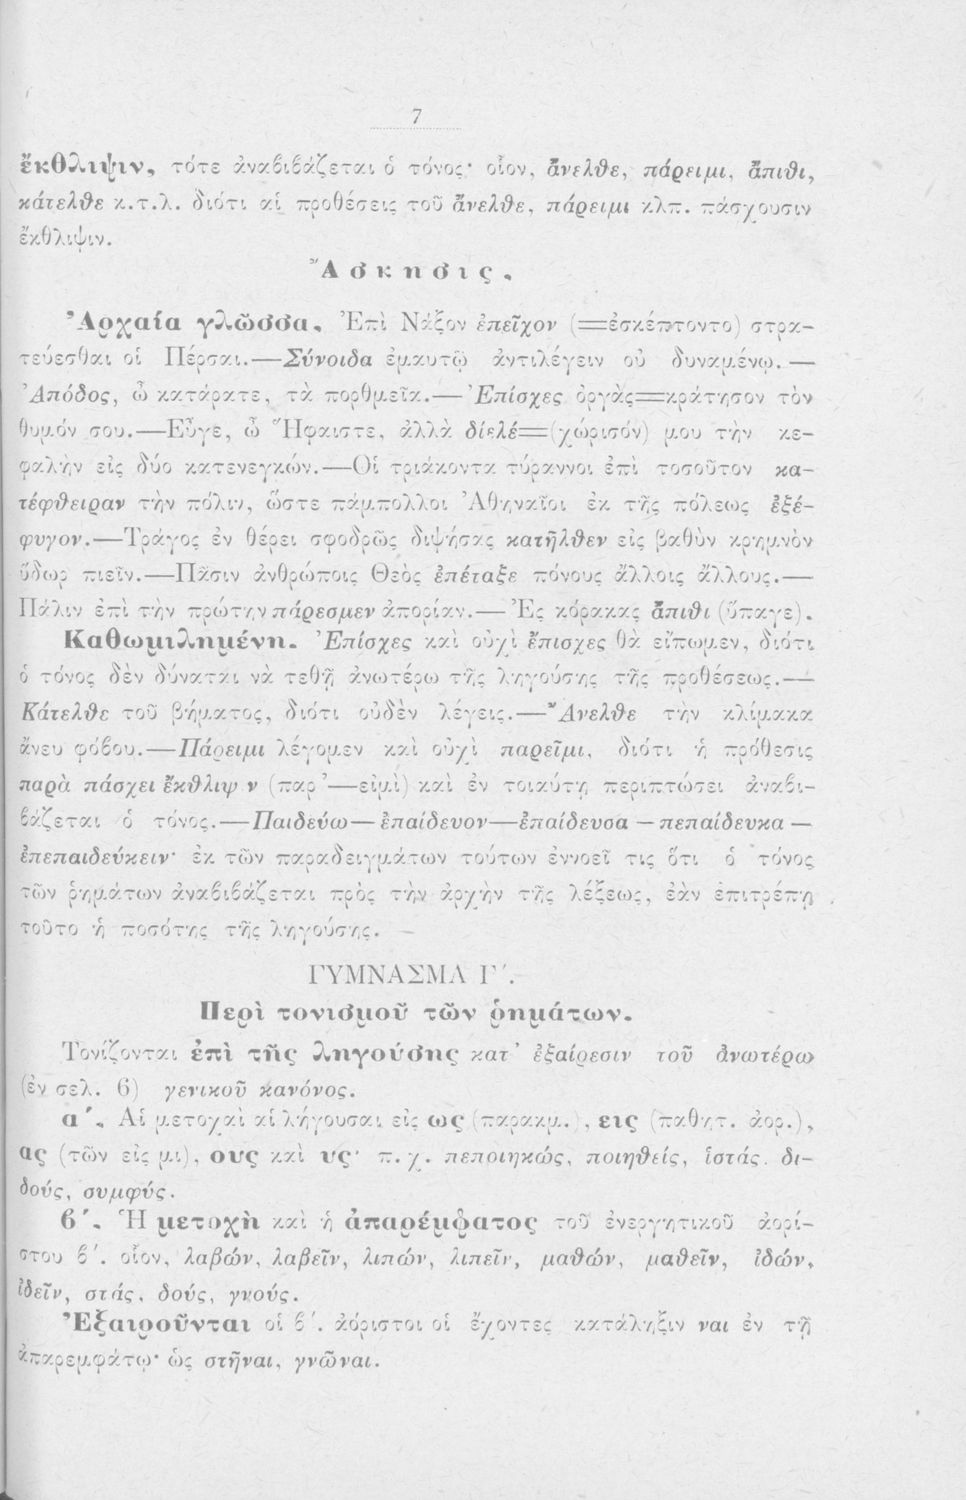 7
ἔκθλιψιν, τότε ἀναβιβάζεται ὁ τόνος· οἷον, ἄνελθε, πάρειμι, ἄπιθι,
κάτελθε κ.τ.λ. διότι αἱ προθέσεις τοῦ ἄνελθε, πάρειμι κλπ. πάσχουσιν
ἔκθλιψιν.
Ἄσκησις.
Ἀρχαία γλῶσσα. Ἐπὶ Νάξον ἐπεῖχον (=ἐσκέπτοντο) στρα-
τεύεσθαι οἱ Πέρσαι.—Σύνοιδα ἐμαυτῷ ἀντιλέγειν οὐ δυναμένῳ.—
Ἀπόδος, ὦ κατάρατε, τὰ πορθμεῖα.—Ἐπίσχες ὀργὰς=κράτησον τὸν
θυμόν σου.—Εὖγε, ὦ Ἥφαιστε, ἀλλὰ δίελέ=(χώρισόν) μου τὴν κε-
φαλὴν εἰς δύο κατενεγκών.—Οἱ τριάκοντα τύραννοι ἐπὶ τοσοῦτον κα-
τέφθειραν τὴν πόλιν, ὥστε πάμπολλοι Ἀθηναῖοι ἐκ τῆς πόλεως ἐξέ-
φυγον.—Τράγος ἐν θέρει σφοδρῶς διψήσας κατῆλθεν εἰς βαθὺν κρημνὸν
ὕδωρ πιεῖν.—Πᾶσιν ἀνθρώποις Θεὸς ἐπέταξε πόνους ἄλλοις ἄλλους.—
Πάλιν ἐπὶ τὴν πρώτην πάρεσμεν ἀπορίαν.—Ἐς κόρακας ἄπιθι (ὕπαγε).
Καθωμιλημένη. Ἐπίσχες καὶ οὐχὶ ἔπισχες θὰ εἴπωμεν, διότι
ὁ τόνος δὲν δύναται νὰ τεθῇ ἀνωτέρω τῆς ληγούσης τῆς προθέσεως.—
Κάτελθε τοῦ βήματος, διότι οὐδὲν λέγεις.—Ἄνελθε τὴν κλίμακα
ἄνευ φόβου.—Πάρειμι λέγομεν καὶ οὐχὶ παρεῖμι, διότι ἡ πρόθεσις
παρὰ πάσχει ἔκθλιψ ν (παρ’—εἰμὶ) καὶ ἐν τοιαύτῃ περιπτώσει ἀναβι-
βάζεται ὁ τόνος.—Παιδεύω—ἐπαίδευον—ἐπαίδευσα—πεπαίδευκα—
ἐπεπαιδεύκειν· ἐκ τῶν παραδειγμάτων τούτων ἐννοεῖ τις ὅτι ὁ τόνος
τῶν ῥημάτων ἀναβιβάζεται πρὸς τὴν ἀρχὴν τῆς λέξεως, ἐὰν ἐπιτρέπῃ
τοῦτο ἡ ποσότης τῆς ληγούσης.
ΓΥΜΝΑΣΜΑ Γ΄.
Περὶ τονισμοῦ τῶν ῥημάτων.
Τονίζονται ἐπὶ τῆς ληγούσης κατ’ ἐξαίρεσιν τοῦ ἀνωτέρω
(ἐν σελ. 6) γενικοῦ κανόνος.
α΄. Αἱ μετοχαὶ αἱ λήγουσαι εἰς ως (παρακμ.), εις (παθητ. ἀορ.),
ας (τῶν εἰς μι), ους καὶ υς· π.χ. πεποιηκώς, ποιηθείς, ἱστάς, δι-
δούς, συμφύς.
β΄. Ἡ μετοχὴ καὶ ἡ ἀπαρέμφατος τοῦ ἐνεργητικοῦ ἀορί-
στου β΄. οἷον, λαβών, λαβεῖν, λιπών, λιπεῖν, μαθών, μαθεῖν, ἰδών,
ἰδεῖν, στάς, δούς, γνούς.
Ἐξαιροῦνται οἱ β΄. ἀόριστοι οἱ ἔχοντες κατάληξιν ναι ἐν τῇ
ἀπαρεμφάτῳ· ὡς στῆναι, γνῶναι.